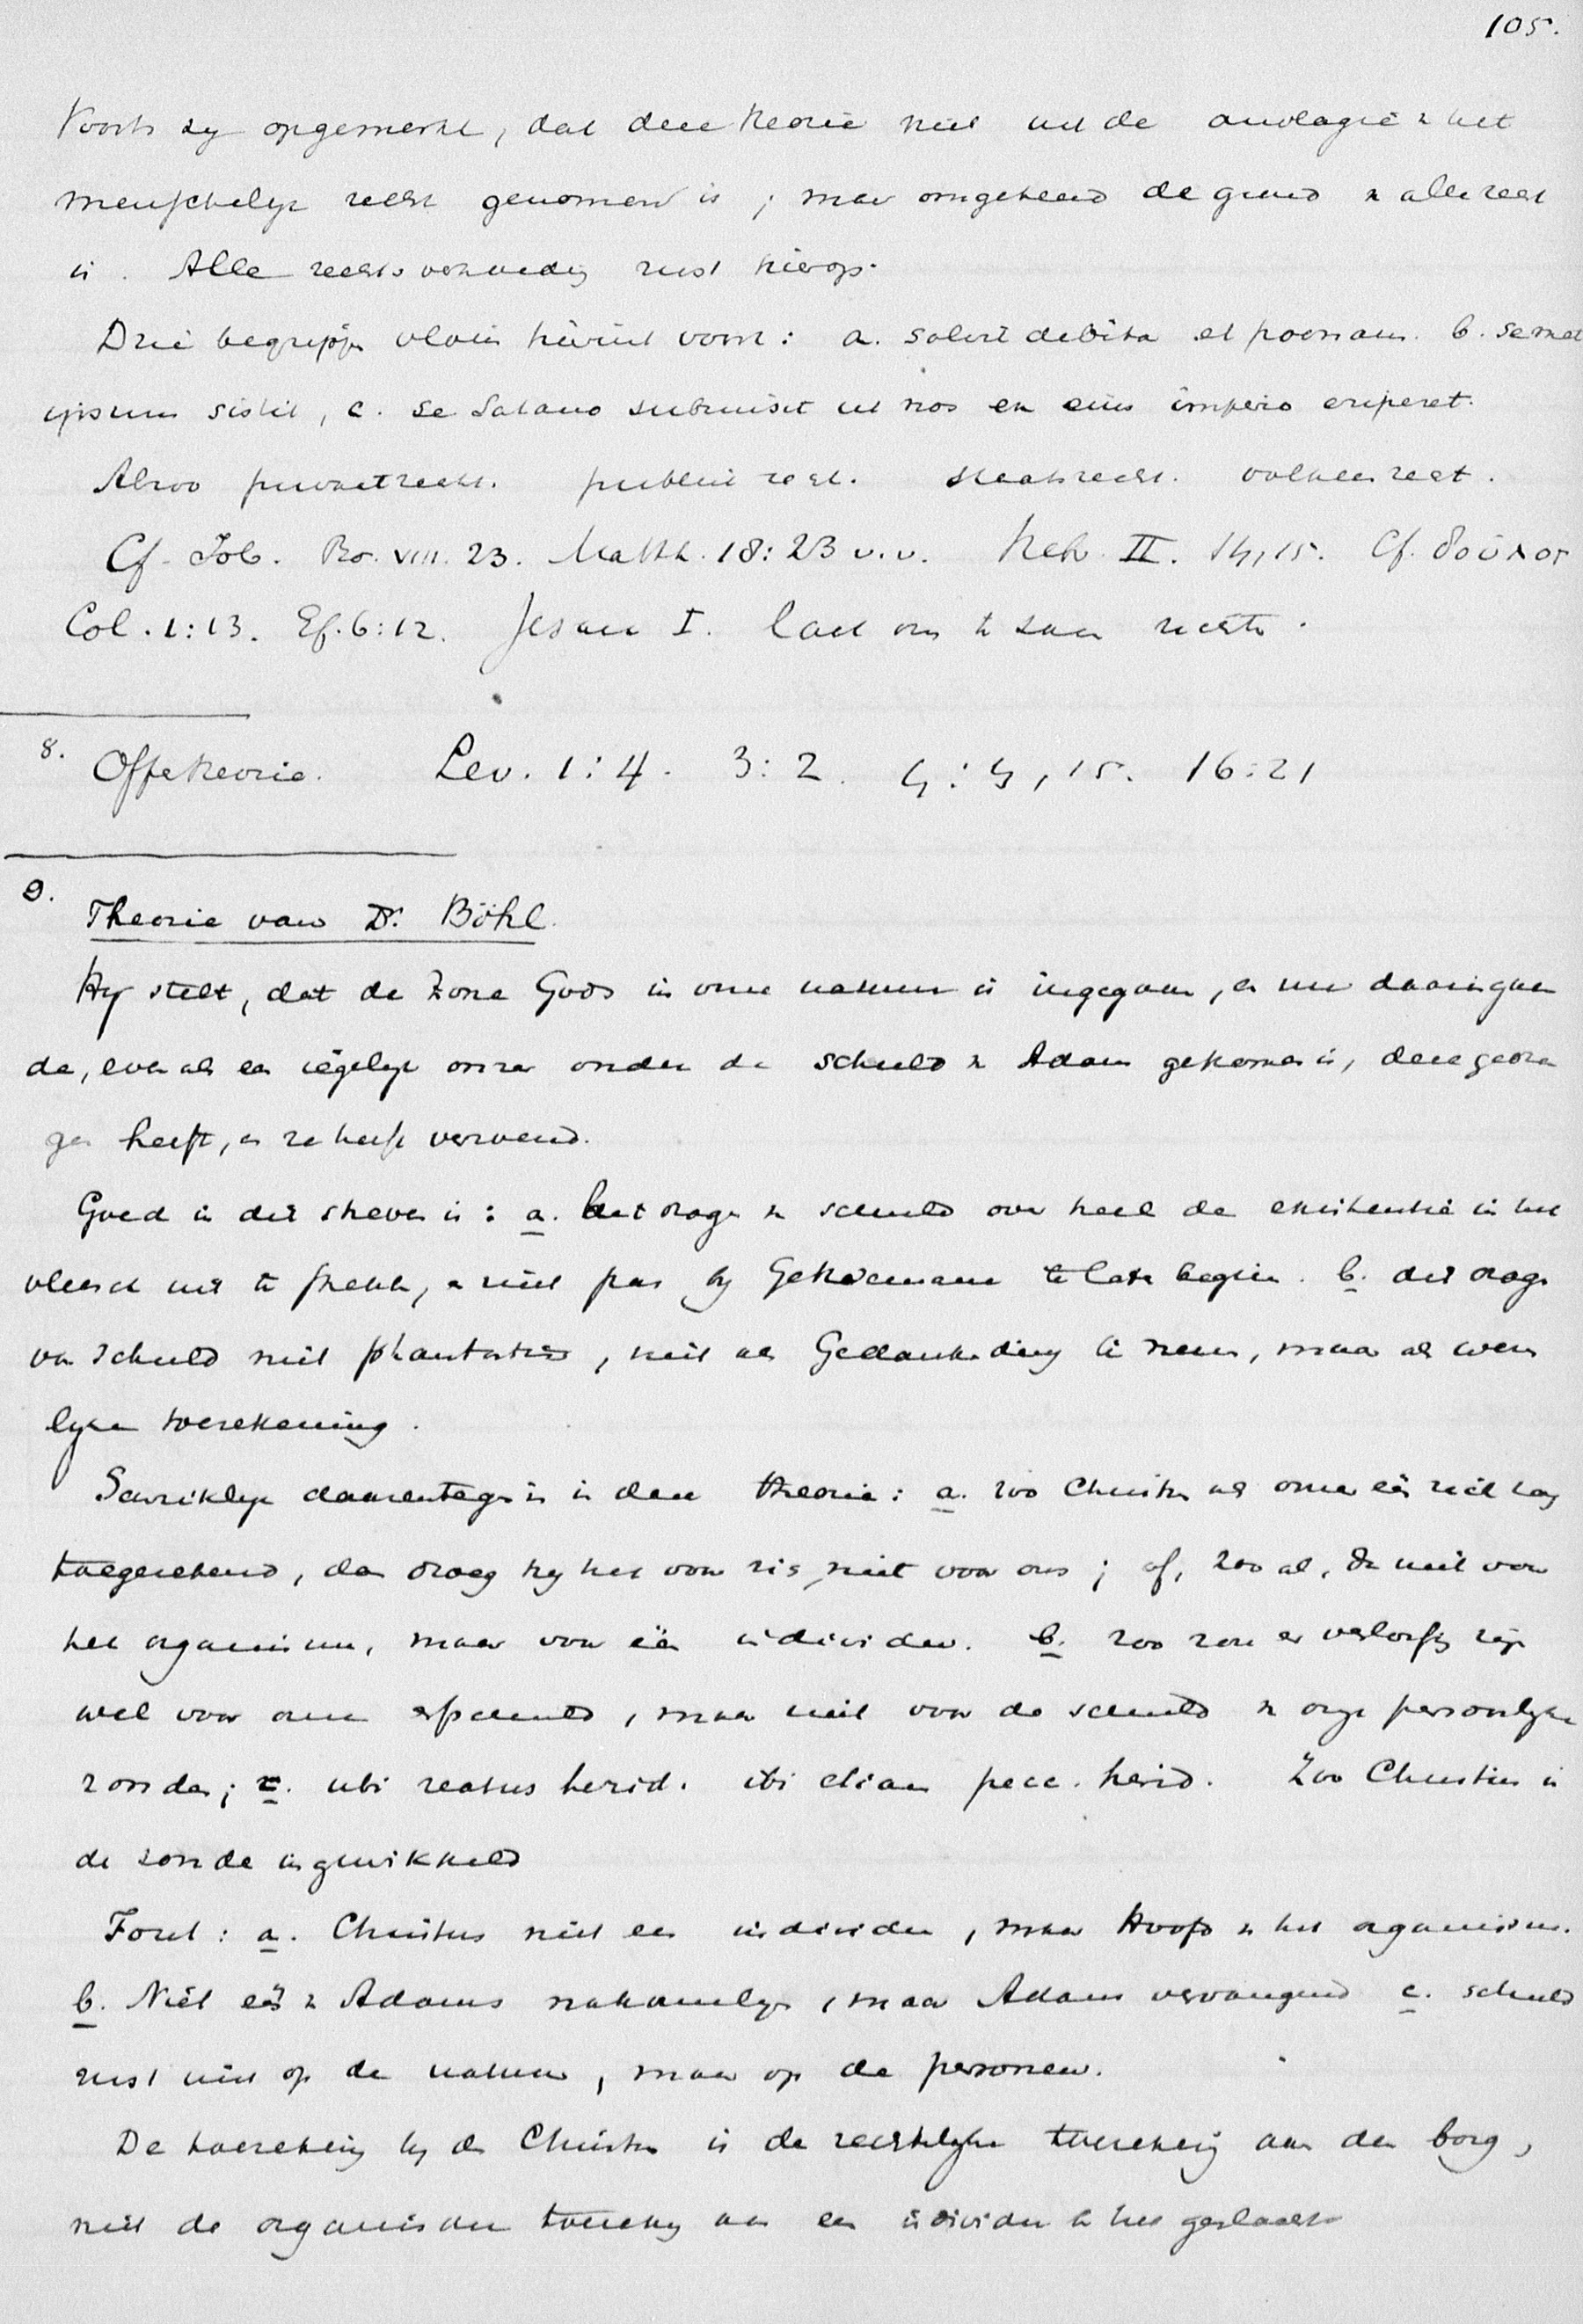 105.
Voorts zy opgemerkt, dat deze theorie niet uit de analogie v het
menschelyk recht genomen is; maar omgekeerd de grond v alle recht
is. Alle rechtsverhouding rust hierop.
Drie begrippen vloeien hieruit voort: a. solvit debita et poenam. b. semet
ipsum sistit, c. se Satano submisit ut nos ex eius imperio eriperet.
Alzoo privaatrecht. publiek recht. staatsrecht. volkenrecht.
Cf. Job. Ro. VIII. 23. Matth. 18:23 v.v. Heb. II. 14, 15. Cf. δοῦλος
Col. 1:13. Ef. 6:12. Jesaia I. Laat ons te samen rechten.
8. Offertheorie. Lev. 1:4. 3:2. 4:4, 15. 16:21
9. Theorie van Dr. Böhl.
Hy stelt, dat de Zone Gods in onze natuur is ingegaan, en nu daaringaan
de, even als een iegelyk onzer onder de schuld v Adam gekomen is, deze gedra
gen heeft, en ze heeft verzoend.
Goed in dit streven is: a. het dragen v schuld over heel de existentie in het
vleesch uit te strekken, en niet pas by Gethsemane te laten beginnen. b. dit dragen
van schuld niet phantastisch, niet als Gedankending te nemen, maar als wezen
lyke toerekening.
Schrikkelyk daarentegen is in deze theorie: a. zoo Christus als onzer één niet lag
toegerekend, dan droeg hy het voor zich, niet voor ons; of, zoo al, dan niet voor
het organisme, maar voor één individu. b. zoo zou er verlossing zyn
wel voor onze erfschuld, maar niet voor de schuld v onze persoonlyke
zonden; c. ubi reatus hered. ibi etiam pecc. hered. Zoo Christus in
de zonde ingewikkeld
Fout: a. Christus niet een individu, maar Hoofd v het organisme.
b. Niet één v Adams nakomelingen, maar Adam vervangend c. schuld
rust niet op de natuur, maar op de personen.
De toerekening by den Christus is de rechterlyke toerekening aan den borg,
niet de organische toerekening aan een individu in het geslacht